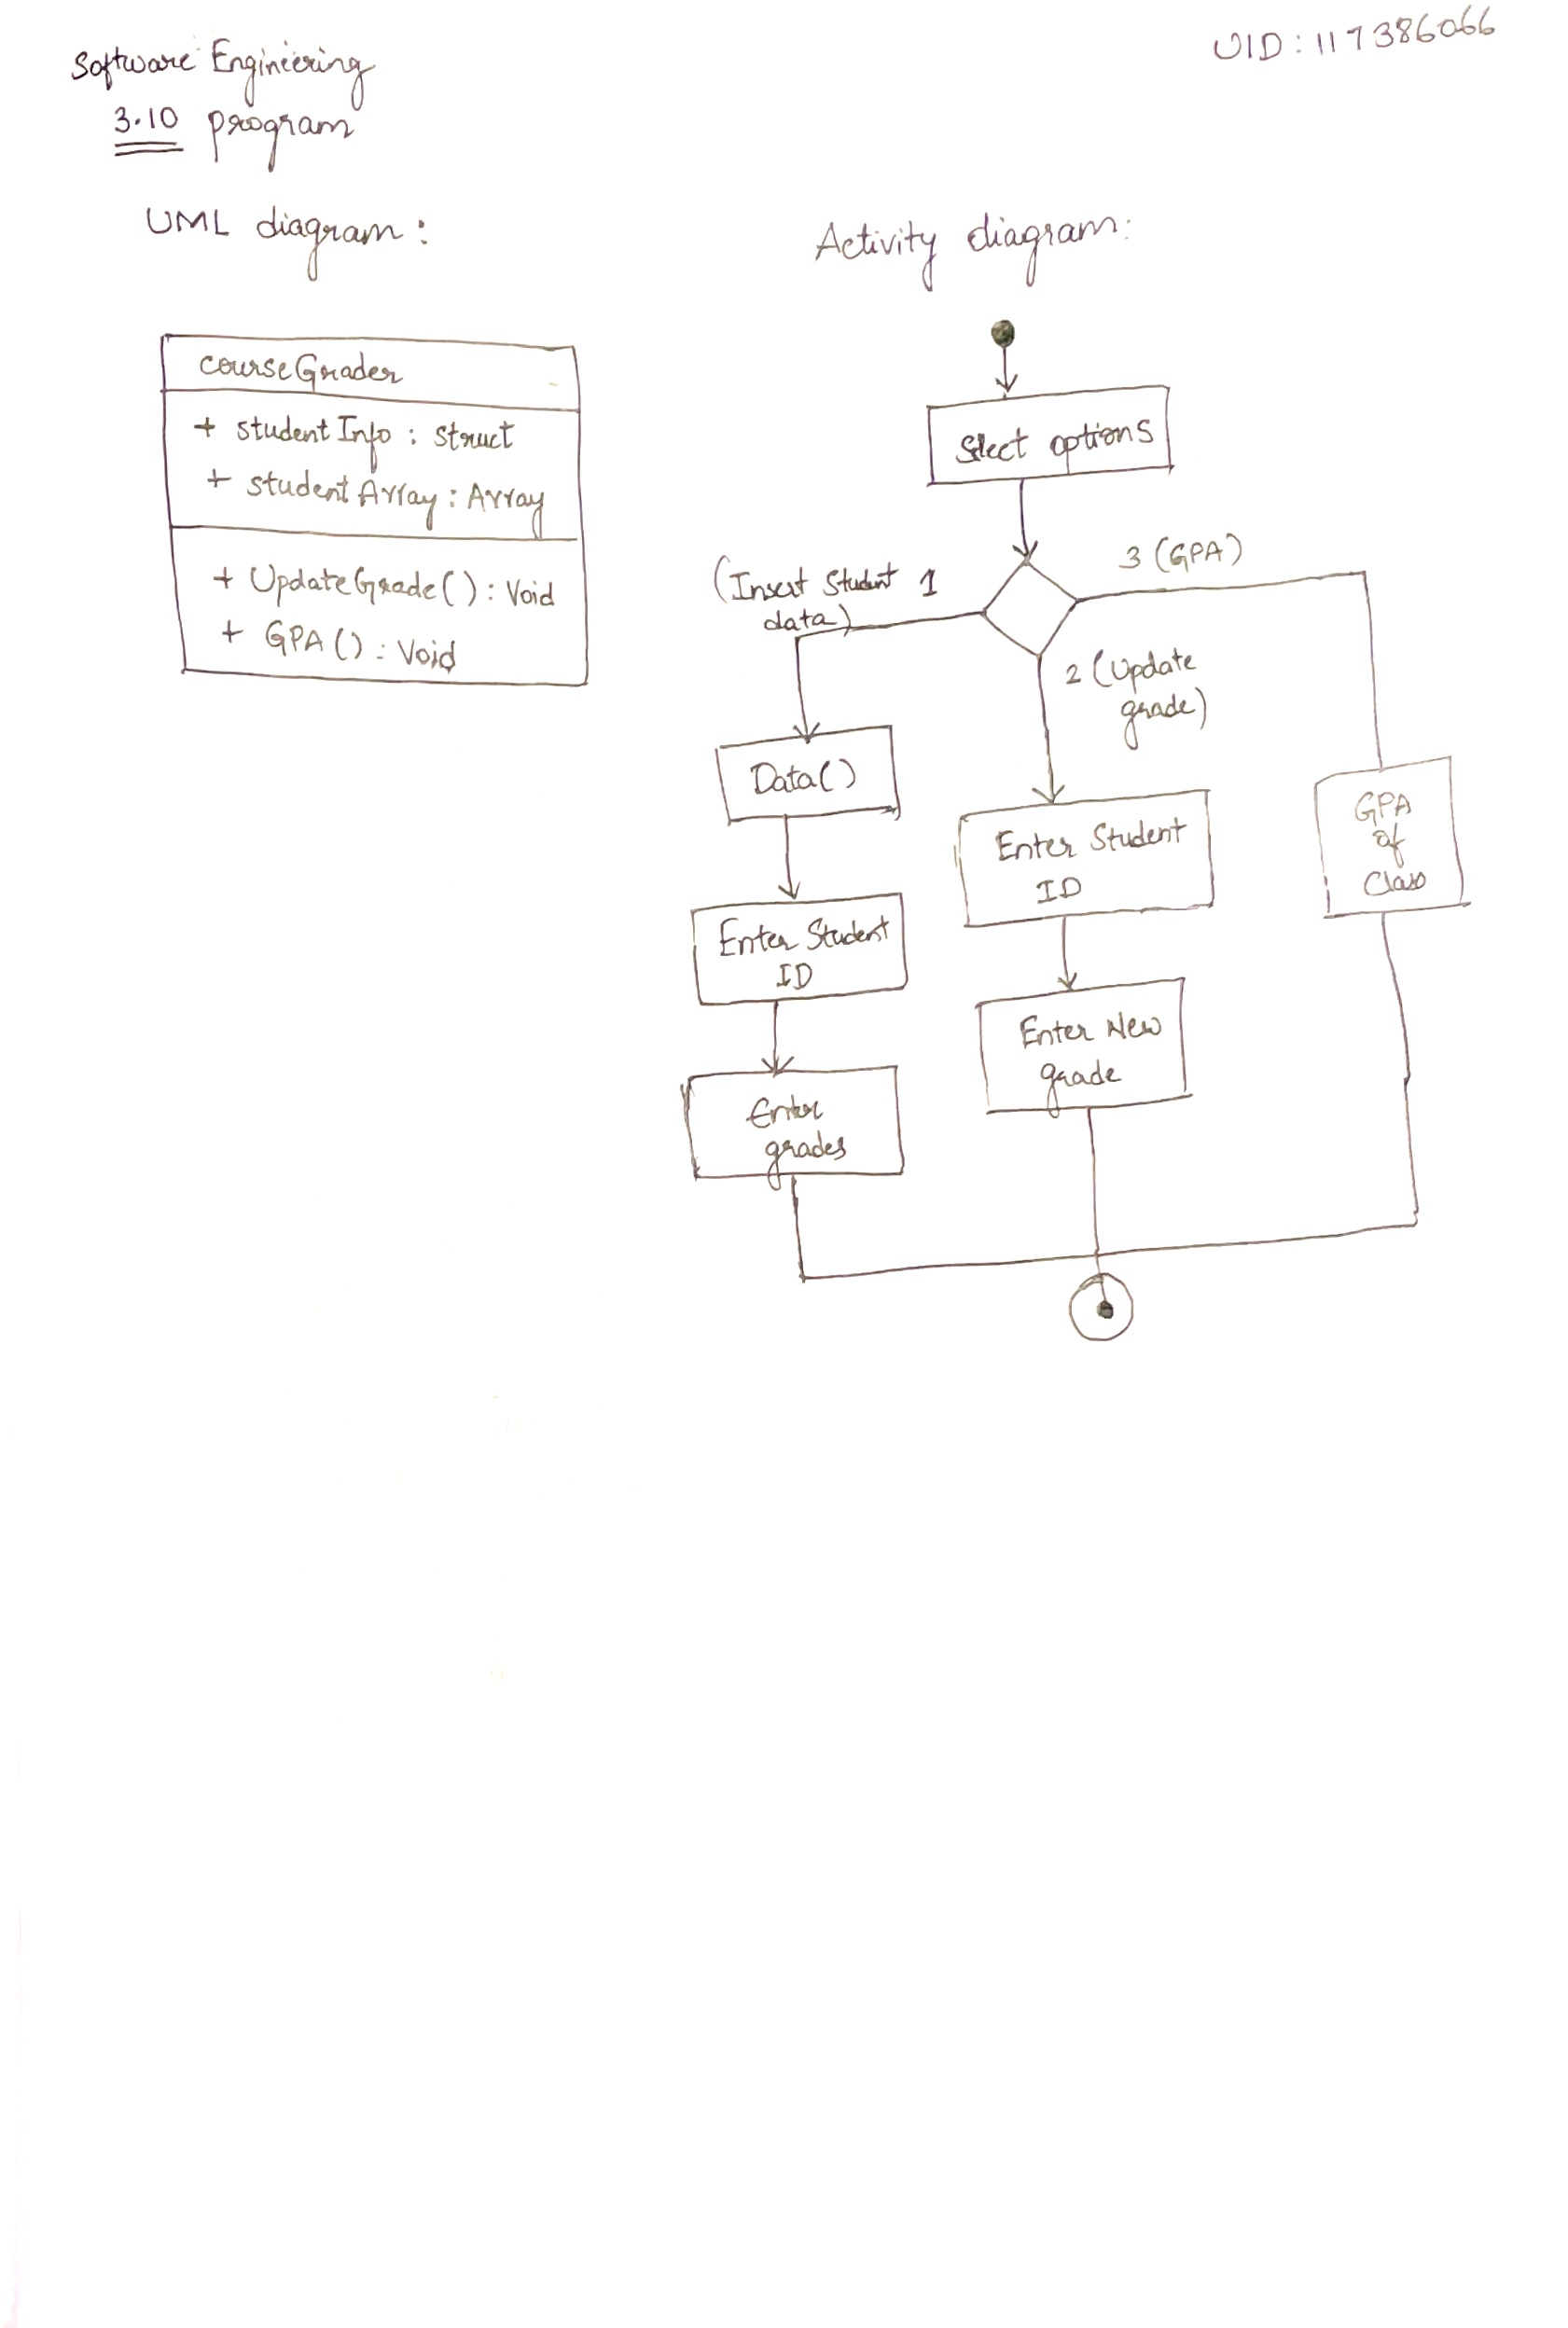 Software Engineering
UID: 117386066
3.10 program
UML diagram:
courseGrader
+ studentInfo : Struct
+ studentArray : Array
+ UpdateGrade() : Void
+ GPA() : Void
Activity diagram:
Select options
(Insert Student 1
data)
3 (GPA)
2 (Update
grade)
Data()
Enter Student
ID
Enter
grades
Enter Student
ID
Enter New
grade
GPA
of
Class